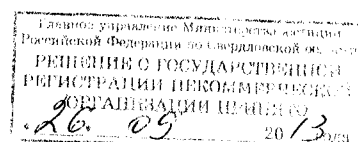 Главное управление Министерства юстиции
Российской Федерации по Свердловской области
РЕШЕНИЕ О ГОСУДАРСТВЕННОЙ
РЕГИСТРАЦИИ НЕКОММЕРЧЕСКОЙ
ОРГАНИЗАЦИИ ПРИНЯТО
„26. 09 2013 года